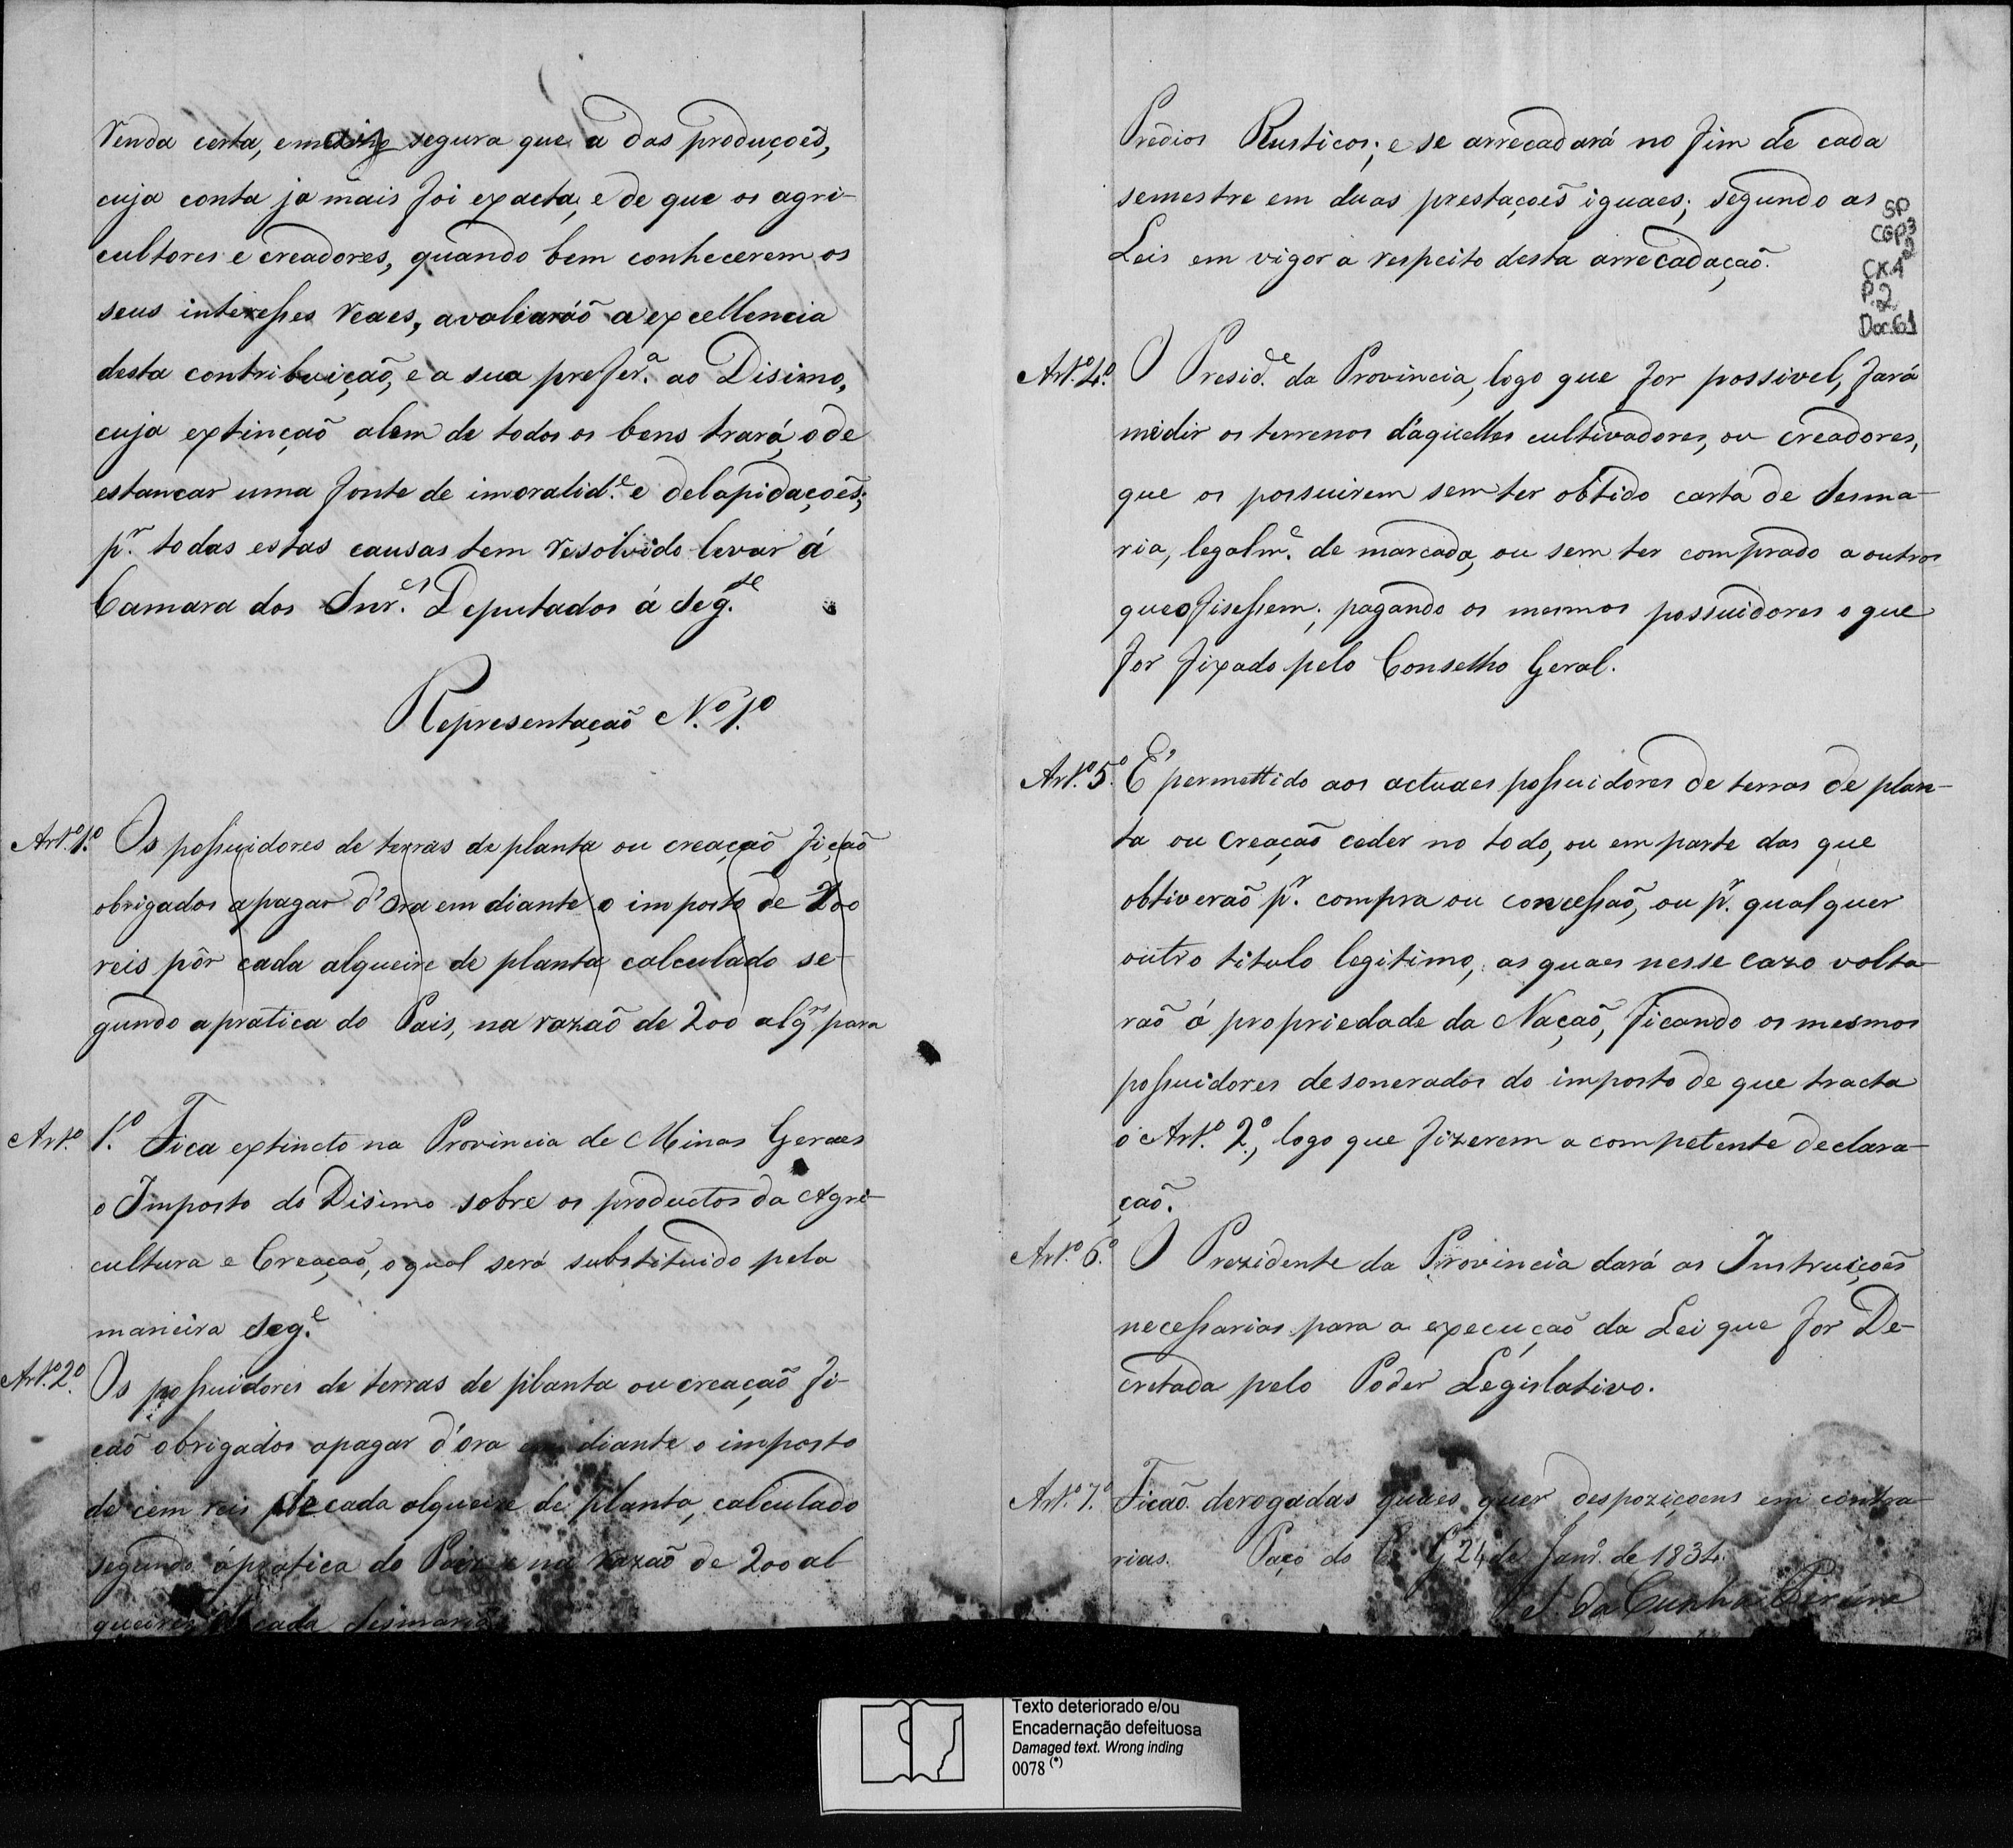 Venda certa, e mais segura que a das produçoẽs,
cuja conta ja mais foi exacta, e de que os agri-
cultores e creadores, quando bem conhecerem os
seus interesses reaes, avaliaráõ a excellencia
desta contribuiçaõ, e a sua prefer.ª ao Disimo,
cuja extinçaõ alem de todos os bens trará, o de
estancar uma fonte de imoralid.e e delapidaçoẽs;
p.r todas estas causas tem resolvido levar á
Camara dos Snr.es Deputados á Seg.te
Representaçaõ N.º 1.º
Art.º 1.º Os possuidores de terras de planta ou creaçaõ ficaõ
obrigados a pagar d'ora em diante o imposto de 200
reis pôr cada alqueire de planta calculado se-
gundo a pratica do Pais, na razaõ de 200 alq.rs para
Art.º 1.º Fica extincto na Provincia de Minas Geraes
o Imposto do Disimo sobre os productos da Agri-
cultura e Creaçaõ, o qual será substituido pela
maneira Seg.e
Art.º 2.º Os possuidores de terras de planta ou creaçaõ fi-
caõ obrigados a pagar d'ora em diante o imposto
de cem reis de cada alqueire de planta, calculado
segundo á pratica do Pais e na razaõ de 200 al-
queires cada Sesmaria
Predios Rusticos; e se arrecadará no fim de cada
semestre em duas prestaçoẽs iguaes; segundo as
Leis em vigor a respeito desta arrecadaçaõ.
SP
CGP3
CX.4
P.2
Doc.61
Art.º 4.º O Presid.e da Provincia, logo que for possivel, fará
medir os terrenos d'aquelles cultivadores, ou creadores,
que os possuirem sem ter obtido carta de Sesma-
ria, legalm.e de marcada, ou sem ter comprado a outros
que o fisessem; pagando os mesmos possuidores o que
for fixado pelo Conselho Geral.
Art.º 5.º E' permettido aos actuaes possuidores de terras de plan-
ta ou creaçaõ ceder no todo, ou em parte das que
obtiveraõ p.r compra ou concessaõ, ou p.r qual quer
outro titulo legitimo, as quaes nesse cazo volta-
raõ á propriedade da Naçaõ, ficando os mesmos
possuidores desonerados do imposto de que tracta
o Art.º 2.º, logo que fizerem a competente declara-
çaõ.
Art.º 6.º O Prezidente da Provincia dará as Instruiçoẽs
necessarias para a execuçaõ da Lei que for De-
cretada pelo Poder Legislativo.
Art.º 7.º Ficaõ derogadas quaes quer despoziçoens em contra-
rias. Paço do C. G. 24 de Janr.º de 1834.
da Cunha Pereira
Texto deteriorado e/ou
Encadernação defeituosa
Damaged text. Wrong inding
0078 (*)